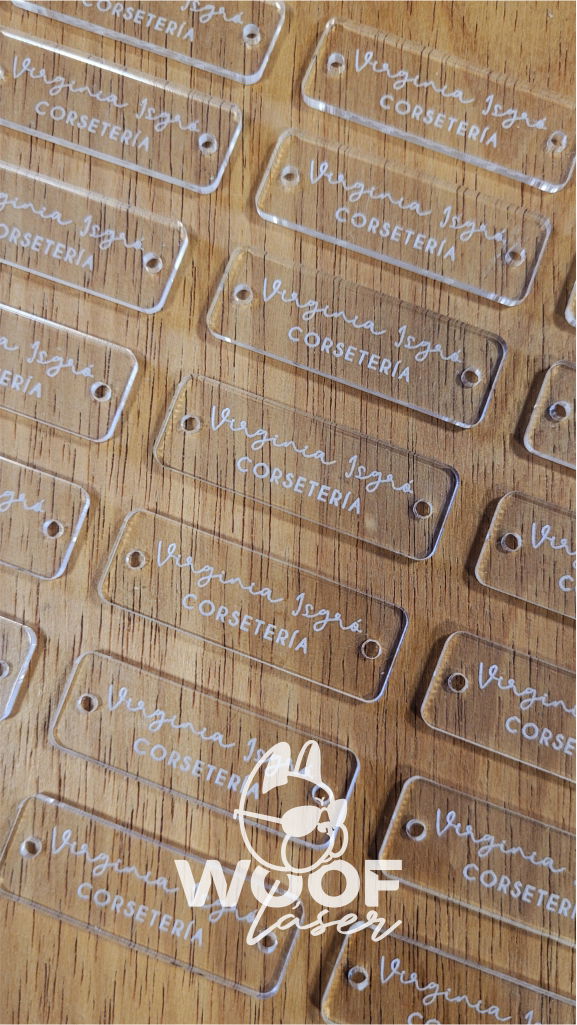 Isgró
CORSETERÍA
Virginia Isgró
CORSETERÍA
Isgró
ORSETERÍA
Isgró
ERÍA
Virginia Isgró
CORSETERÍA
Virginia Isgró
CORSETERÍA
Virginia Isgró
CORSETERÍA
Virginia Isgró
CORSETERÍA
Virginia Isgró
CORSETERÍA
Virginia Isgró
CORSETERÍA
Virginia Isgró
CORSETERÍA
Virginia
CORSE
Virginia
CORSETER
Virginia
WOOF
laser